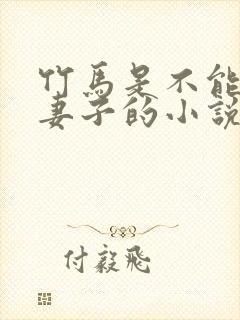 竹馬是不能
妻子的小說
付毅飛